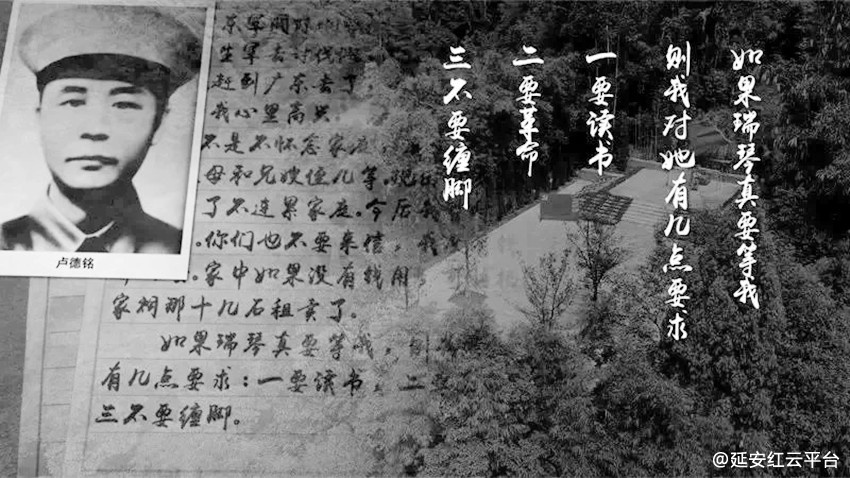 如果瑞琴真要等我
则我对她有几点要求
一要读书
二要革命
三不要缠脚
卢德铭
赶到广东去了
我心里高兴
不是不怀念家庭
母和兄嫂侄儿等
了不连累家庭。今后我
你们也不要来信，我
家中如果没有钱用，
家祠那十几石租卖了。
如果瑞琴真要等我，则
有几点要求：一要读书，二
三不要缠脚。
@延安红云平台